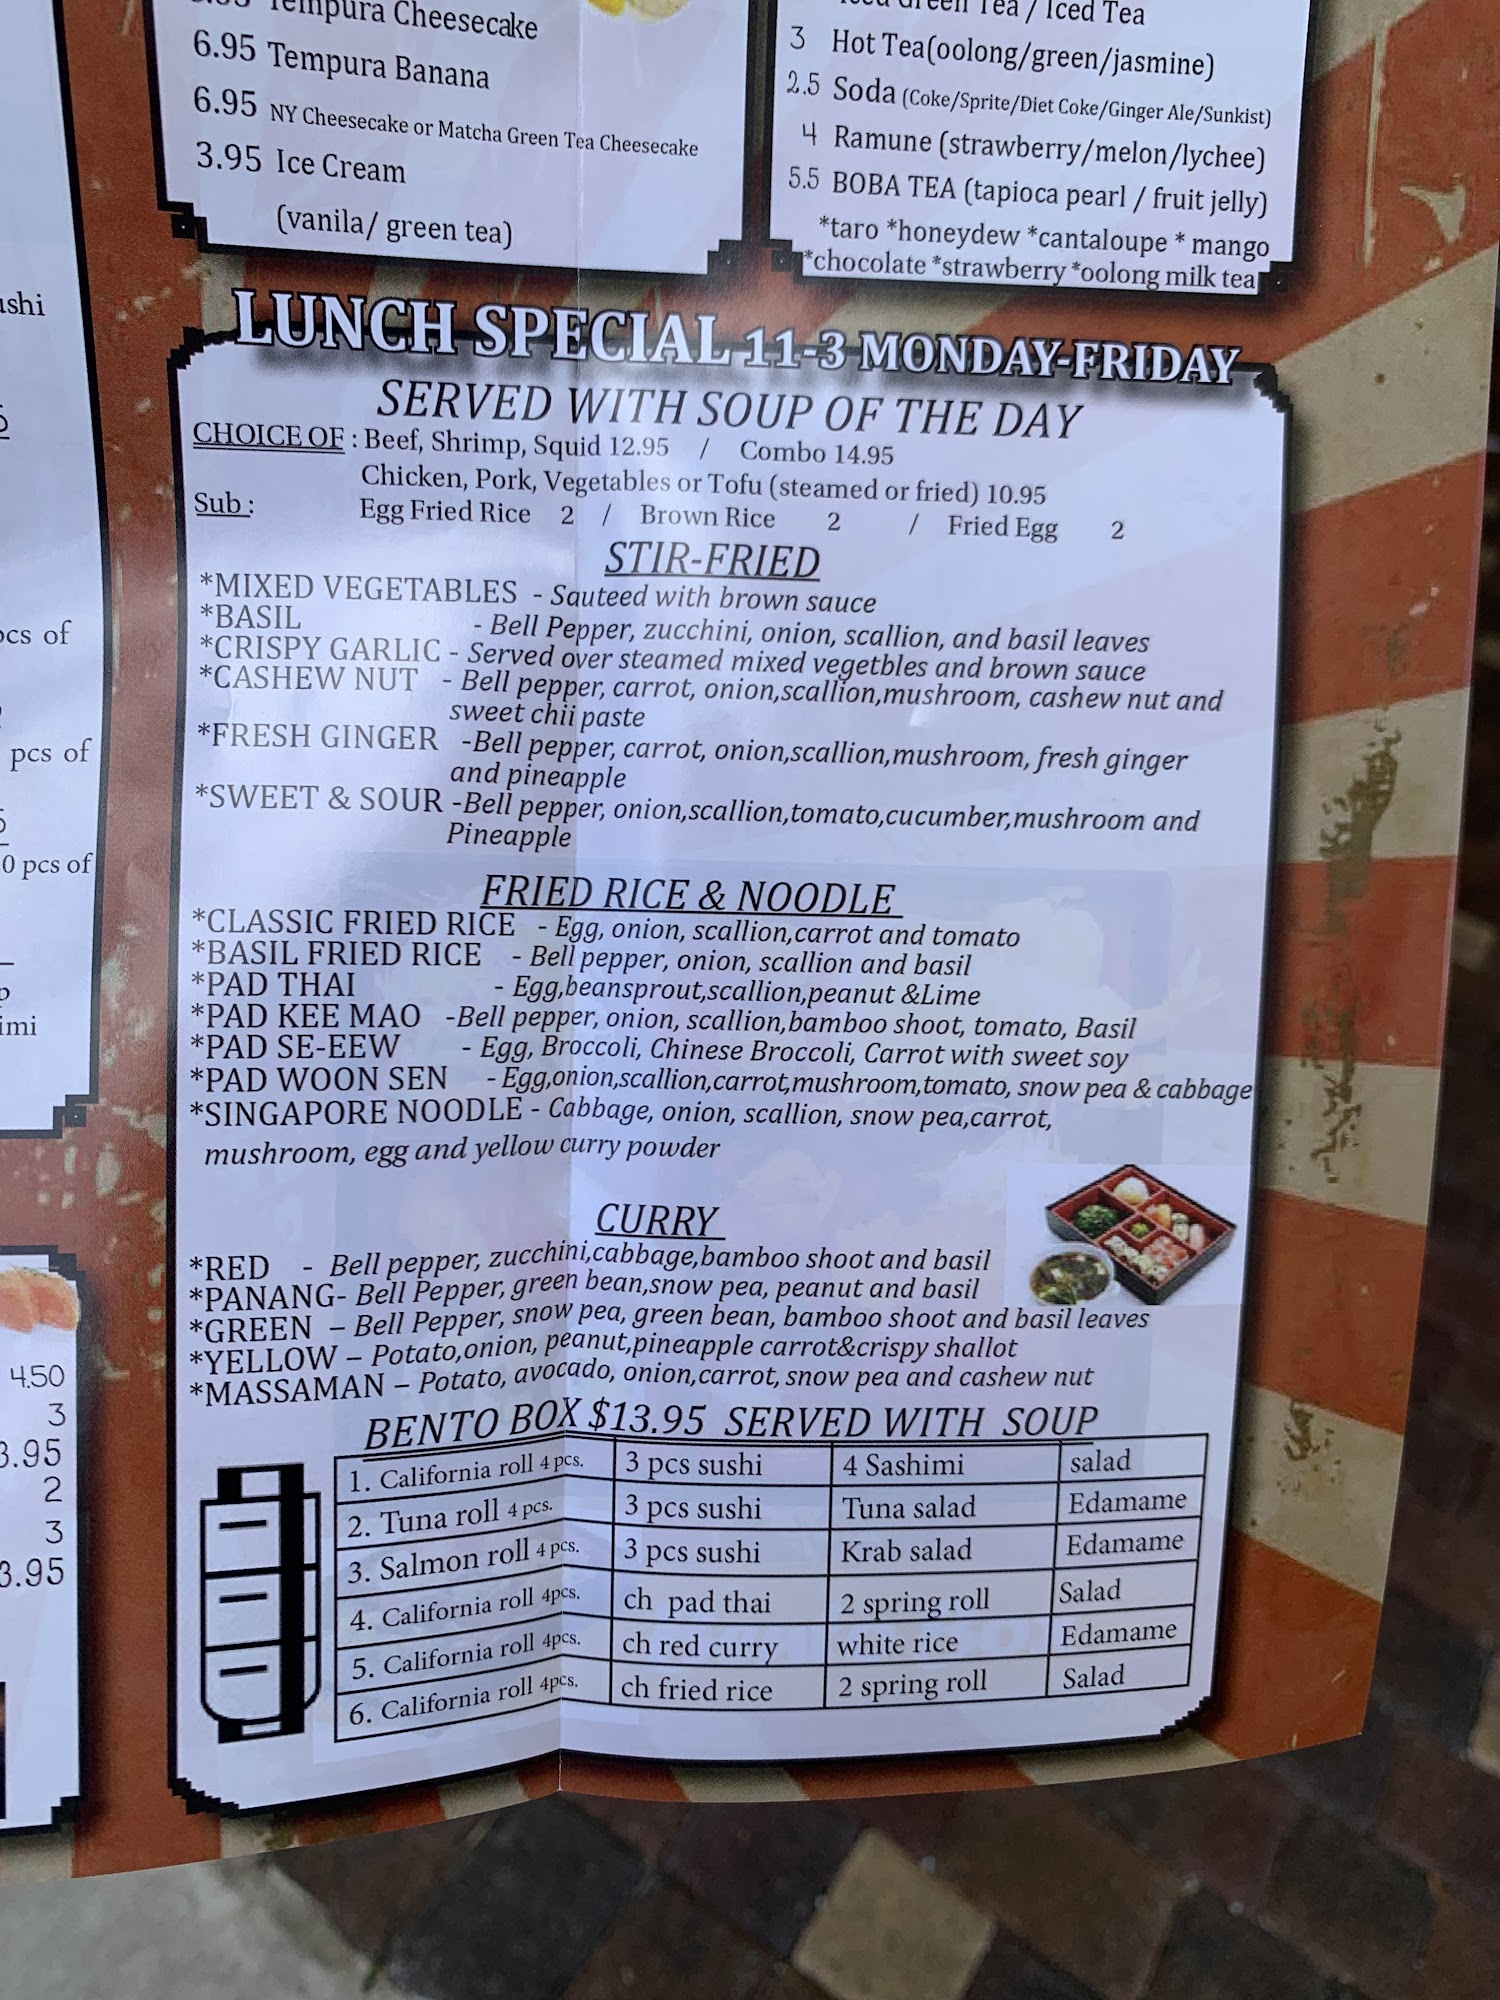 Tempura Cheesecake
6.95 Tempura Banana
6.95 NY Cheesecake or Matcha Green Tea Cheesecake
3.95 Ice Cream
(vanila/ green tea)
Iced Green Tea / Iced Tea
3 Hot Tea(oolong/green/jasmine)
2.5 Soda (Coke/Sprite/Diet Coke/Ginger Ale/Sunkist)
4 Ramune (strawberry/melon/lychee)
5.5 BOBA TEA (tapioca pearl / fruit jelly)
*taro *honeydew *cantaloupe * mango
*chocolate *strawberry *oolong milk tea
pcs of
pcs of
0 pcs of
4.50
3
3.95
2
3
3.95
LUNCH SPECIAL 11-3 MONDAY-FRIDAY
SERVED WITH SOUP OF THE DAY
CHOICE OF : Beef, Shrimp, Squid 12.95 / Combo 14.95
Chicken, Pork, Vegetables or Tofu (steamed or fried) 10.95
Sub : Egg Fried Rice 2 / Brown Rice 2 / Fried Egg 2
STIR-FRIED
*MIXED VEGETABLES - Sauteed with brown sauce
*BASIL - Bell Pepper, zucchini, onion, scallion, and basil leaves
*CRISPY GARLIC - Served over steamed mixed vegetbles and brown sauce
*CASHEW NUT - Bell pepper, carrot, onion,scallion,mushroom, cashew nut and
sweet chii paste
*FRESH GINGER -Bell pepper, carrot, onion,scallion,mushroom, fresh ginger
and pineapple
*SWEET & SOUR -Bell pepper, onion,scallion,tomato,cucumber,mushroom and
Pineapple
FRIED RICE & NOODLE
*CLASSIC FRIED RICE - Egg, onion, scallion,carrot and tomato
*BASIL FRIED RICE - Bell pepper, onion, scallion and basil
*PAD THAI - Egg,beansprout,scallion,peanut &Lime
*PAD KEE MAO -Bell pepper, onion, scallion,bamboo shoot, tomato, Basil
*PAD SE-EEW - Egg, Broccoli, Chinese Broccoli, Carrot with sweet soy
*PAD WOON SEN - Egg,onion,scallion,carrot,mushroom,tomato, snow pea & cabbage
*SINGAPORE NOODLE - Cabbage, onion, scallion, snow pea,carrot,
mushroom, egg and yellow curry powder
CURRY
*RED - Bell pepper, zucchini,cabbage,bamboo shoot and basil
*PANANG- Bell Pepper, green bean,snow pea, peanut and basil
*GREEN – Bell Pepper, snow pea, green bean, bamboo shoot and basil leaves
*YELLOW – Potato,onion, peanut,pineapple carrot&crispy shallot
*MASSAMAN – Potato, avocado, onion,carrot, snow pea and cashew nut
BENTO BOX $13.95 SERVED WITH SOUP
1. California roll 4 pcs. 3 pcs sushi 4 Sashimi salad
2. Tuna roll 4 pcs. 3 pcs sushi Tuna salad Edamame
3. Salmon roll 4 pcs. 3 pcs sushi Krab salad Edamame
4. California roll 4pcs. ch pad thai 2 spring roll Salad
5. California roll 4pcs. ch red curry white rice Edamame
6. California roll 4pcs. ch fried rice 2 spring roll Salad